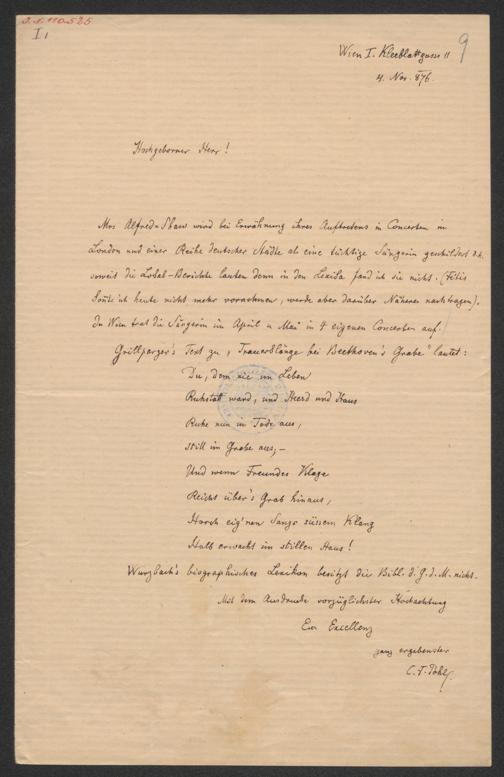 I.N. 110.525
I,
9
Wien I. Kleeblattgasse 11
4. Nov. 876.
Hochgeborner Herr!
Mrs Alfred Shaw wird bei Erwähnung ihres Auftretens in Concerten in
London und einer Reihe deutscher Städte als eine tüchtige Sängerin geschildert d.h.
soweit die Lokal-Berichte lauten denn in den Lexika fand ich sie nicht. (Fétis
ich heute nicht mehr vornehmen, werde aber darüber Näheres nachtragen).
In Wien trat die Sängerin im April u Mai in 4 eigenen Concerten auf.
Grillparzer's Text zu „Trauerklänge bei Beethoven's Grabe" lautet:
Du, dem nie im Leben
Ruhstatt ward, und Heerd und Haus
Ruhe nun im Tode aus,
Still im Grabe aus, –
Und wenn Freundes Klage
Reicht über's Grab hinaus,
Horch eig'nen Sangs süssem Klang
Halb erwacht im stillen Haus!
Wurzbach's biographisches Lexikon besitzt die Bibl. d. G. d. M. nicht.
Mit dem Ausdrucke vorzüglichster Hochachtung
Eur Excellenz
ganz ergebenster
C. F. Pohl.